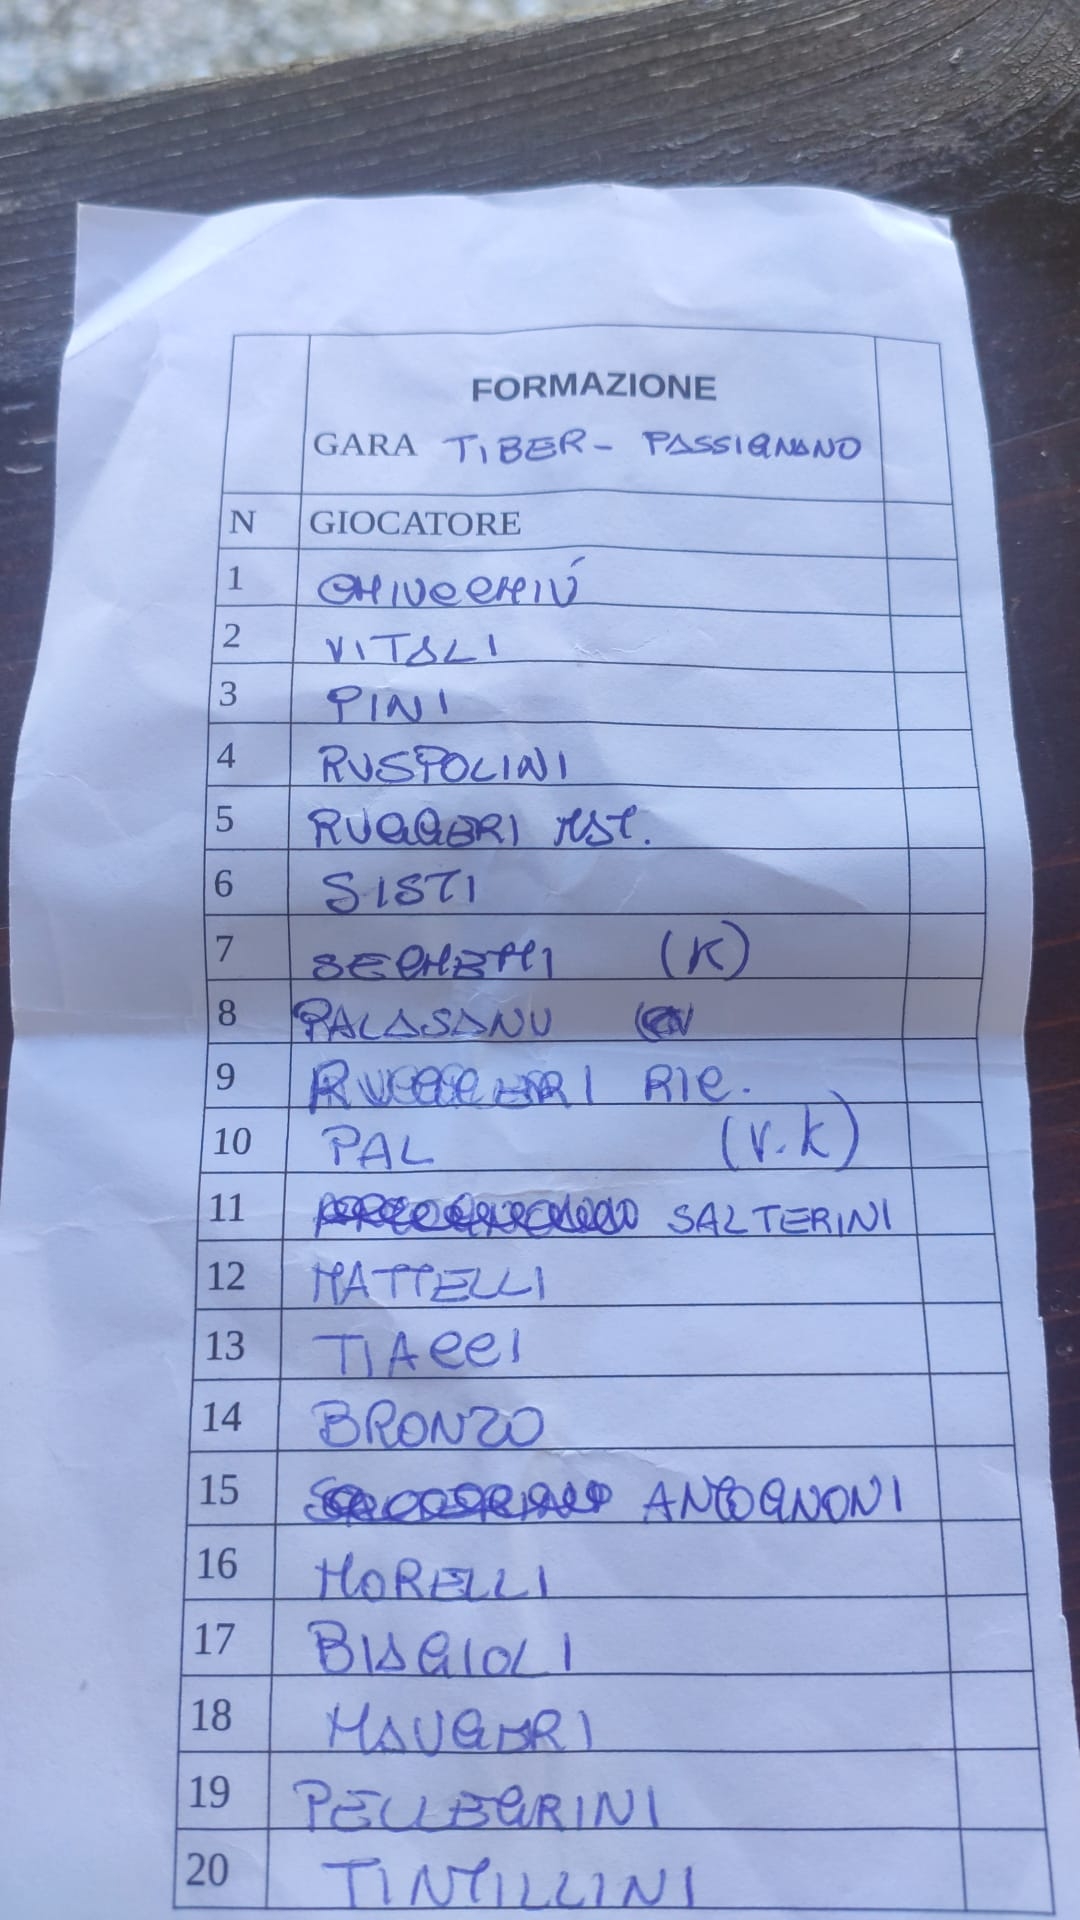 FORMAZIONE
GARA TIBER - PASSIGNANO
N GIOCATORE
1 CHIUCCHIÚ
2 VITALI
3 PINI
4 RUSPOLINI
5 RUGGERI MST.
6 SISTI
7 SEGHETTI (K)
8 PALASANU
9 RUGGERI RIC.
10 PAL (V.K)
11 SALTERINI
12 MATTELLI
13 TIACCI
14 BRONZO
15 ANTOGNONI
16 MORELLI
17 BIAGIOLI
18 MAUGERI
19 PELLEGRINI
20 TINTILLINI